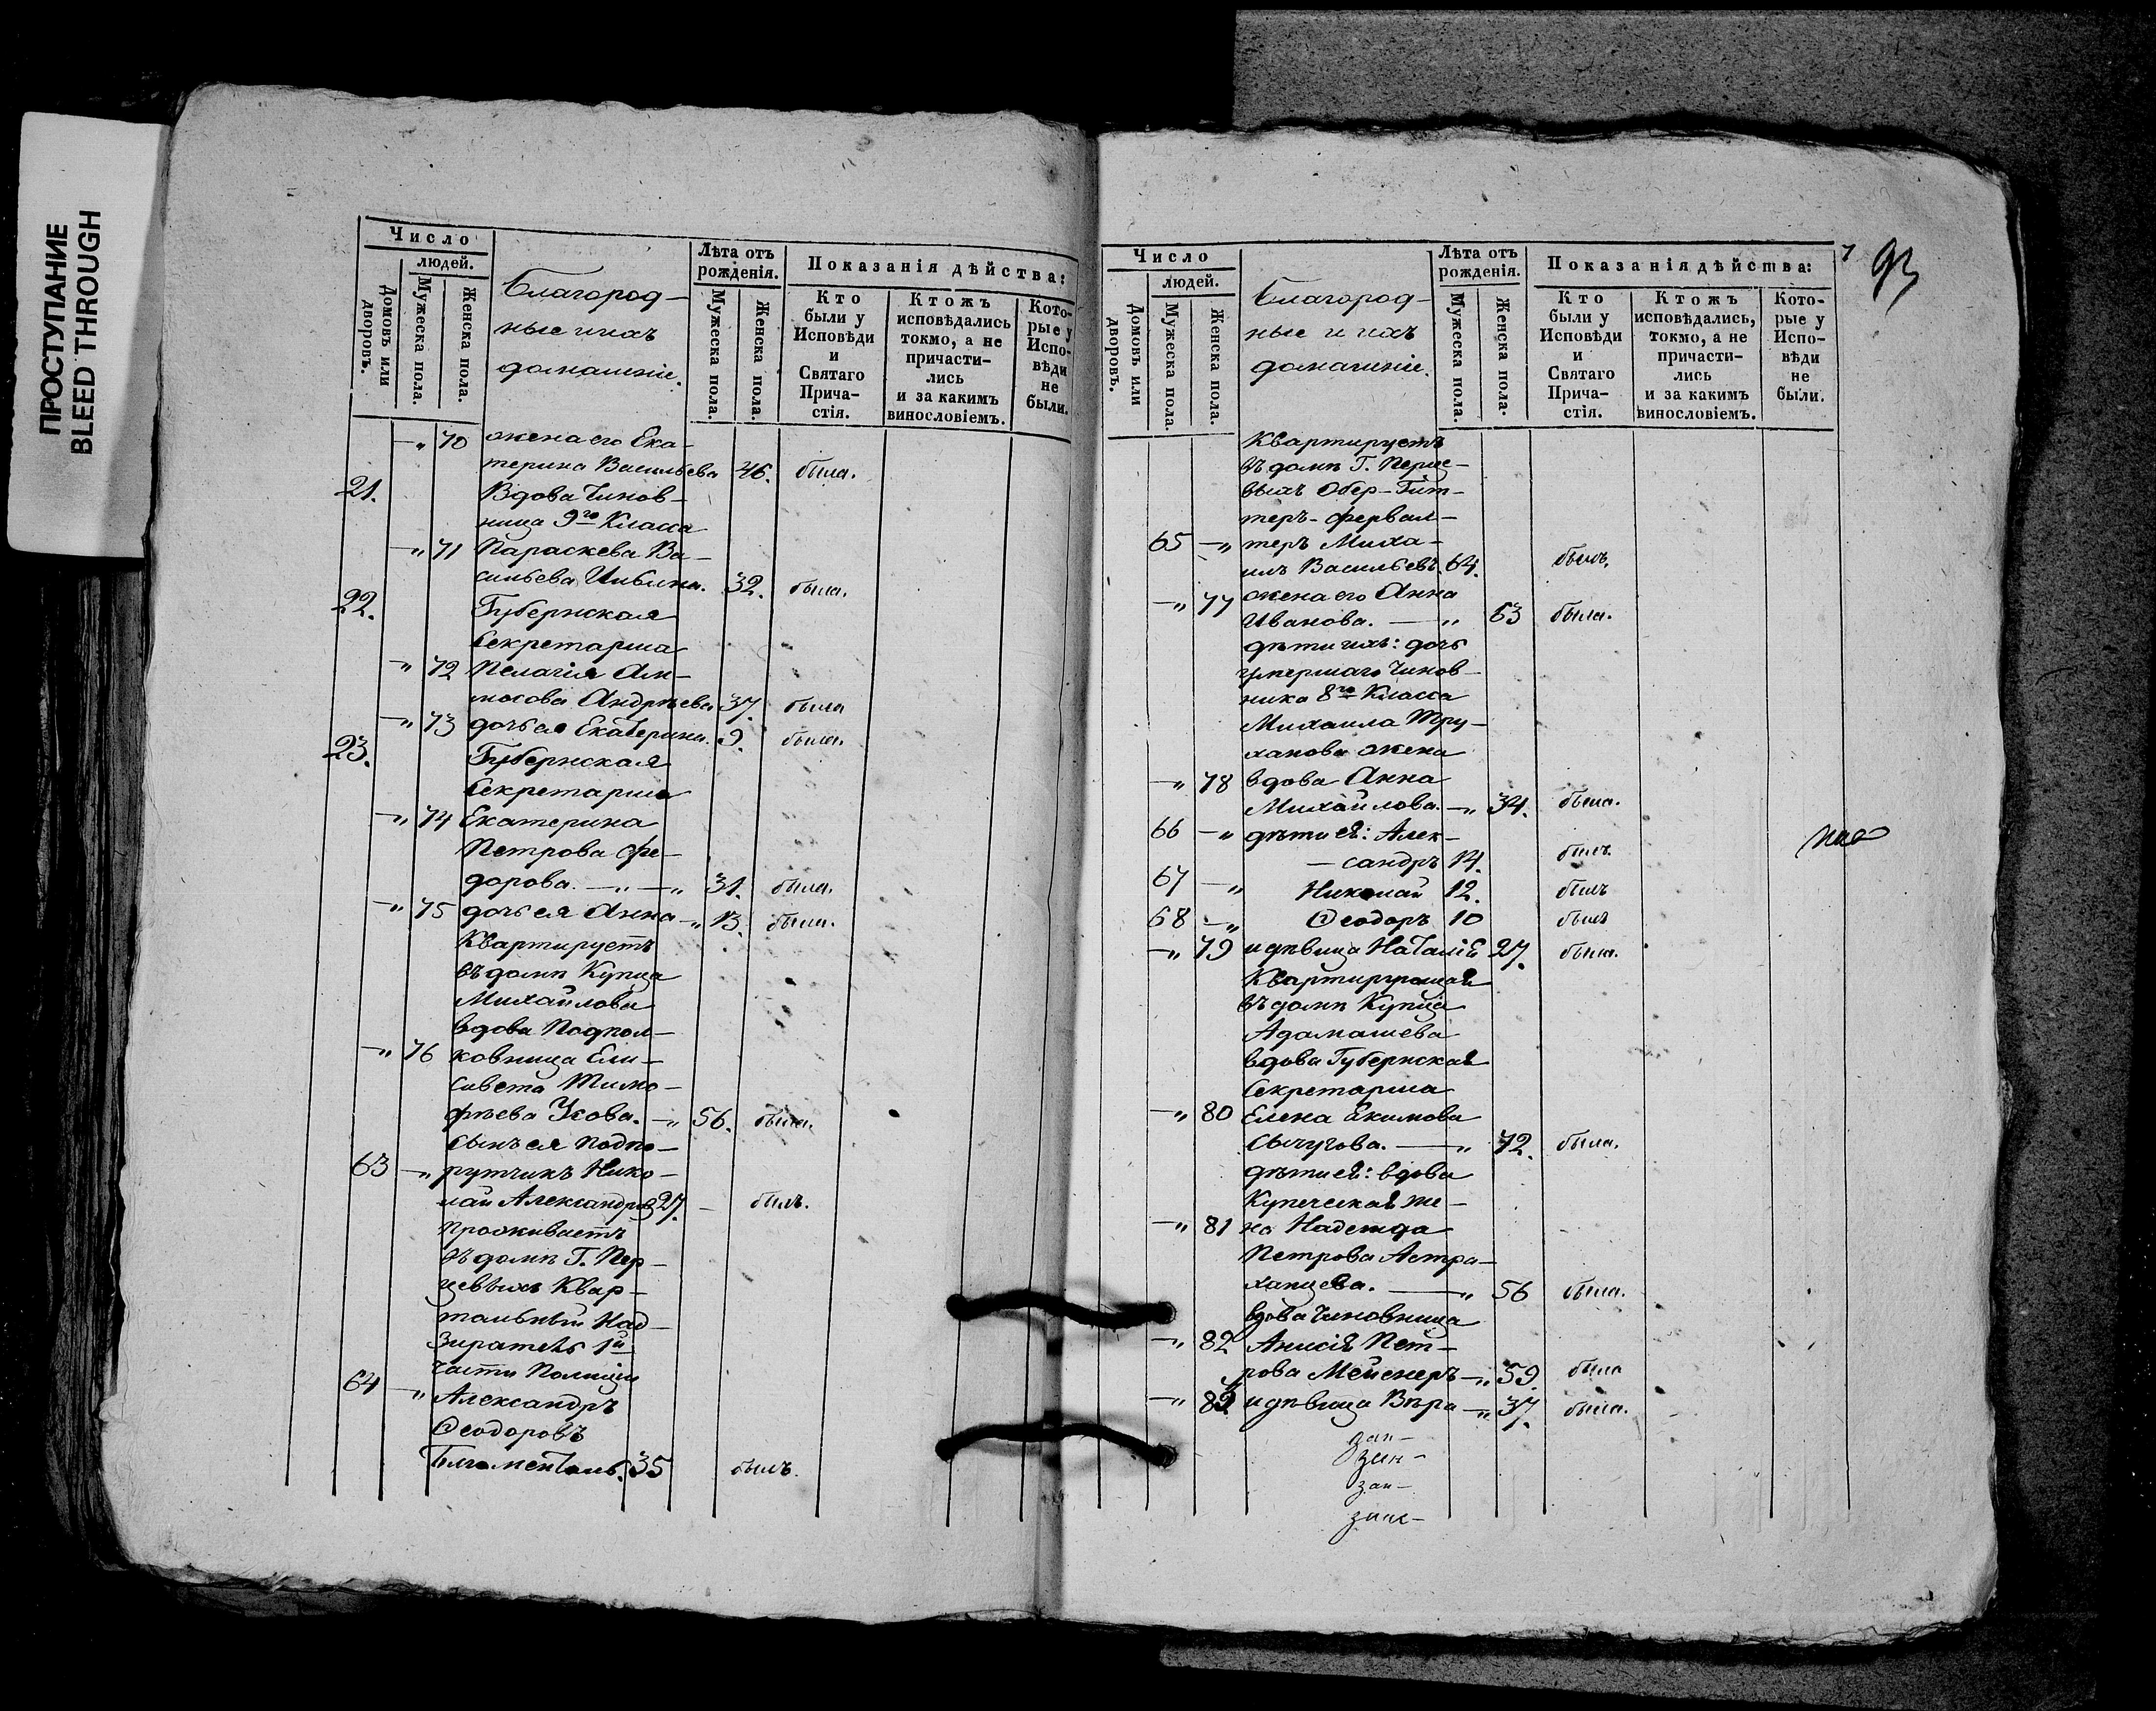 ПРОСТУПАНИЕ
BLEED THROUGH
Число
людей.
Домовъ или дворовъ.
Мужеска пола.
Женска пола.
Благород-
ные и ихъ
домашніе.
Лѣта отъ рожденія.
Мужеска пола.
Женска пола.
Показанія дѣйства:
Кто были у Исповѣди и Святаго Прича-стія.
Ктожъ исповѣдались токмо, а не причасти-лись и за какимъ винословіемъ.
Кото-рые у Испо-вѣди не были.
—„ 70 жена его Ека-
терина Васильева 46. была.
21. Вдова Чинов-
ница 9го Класса
—„ 71 Параскева Ва-
сильева 32. была.
22. Губернская
Секретарша
—„ 72 Пелагія
Андрѣева 37. была
—„ 73 дочь ея Екатерина. 9. была.
23. Губернская
Секретарша
—„ 74 Екатерина
Петрова Фе-
дорова. —„—„ 31. была.
—„ 75 дочь ея Анна —„ 13. была.
Квартируетъ
въ домѣ Купца
Михайлова
вдова Подпол-
—„ 76 ковница Ели-
савета Тимо-
фѣева Усова. —„ 56. была.
Сынъ ея Подпо-
63 —„ рутчикъ Нико-
лай Александровъ 27. — былъ.
Проживаетъ
въ домѣ Г. Пер-
цевыхъ Квар-
тальный Над-
зиратель 1й
части Полиціи
64 —„ Александръ
Ѳеодоровъ
35 былъ.
7 93
Число
людей.
Домовъ или дворовъ.
Мужеска пола.
Женска пола.
Благород-
ные и ихъ
домашніе.
Лѣта отъ рожденія.
Мужеска пола.
Женска пола.
Показанія дѣйства:
Кто были у Исповѣди и Святаго Прича-стія.
Ктожъ исповѣдались, токмо, а не причасти-лись и за какимъ винословіемъ.
Кото-рые у Испо-вѣди не были.
Квартируетъ
въ домѣ Г. Перце-
выхъ Обер-Гит-
теръ-фервал-
65 —„ теръ Миха-
илъ Васильевъ. 64. былъ.
—„ 77 жена его Анна
Иванова. —„ 63 была.
дѣти ихъ: дочь
умершаго Чинов-
ника 8го Класса
Михаила Тру-
ханова жена
—„ 78 вдова Анна
Михайлова. —„ 34. была.
66 —„ дѣти ея: Алек-
—сандръ 14. былъ.
67 —„ Николай 12. былъ
68 —„ Ѳеодоръ 10 былъ
—„ 79 и дѣвица Наталія 27. была.
Квартирующая
въ домѣ Купца
Адамашева
вдова Губернская
Секретарша
—„ 80 Елена Екимова
Сычугова. —„ 72. была.
дѣти ея: вдова
Купеческая же-
—„ 81 на Надежда
Петрова Астра-
ханцева. —„ 56 была.
вдова Чиновница
—„ 82 Анисія Пет-
рова —„ 59. была
—„ 83 и дѣвица Вѣра —„ 37. была.